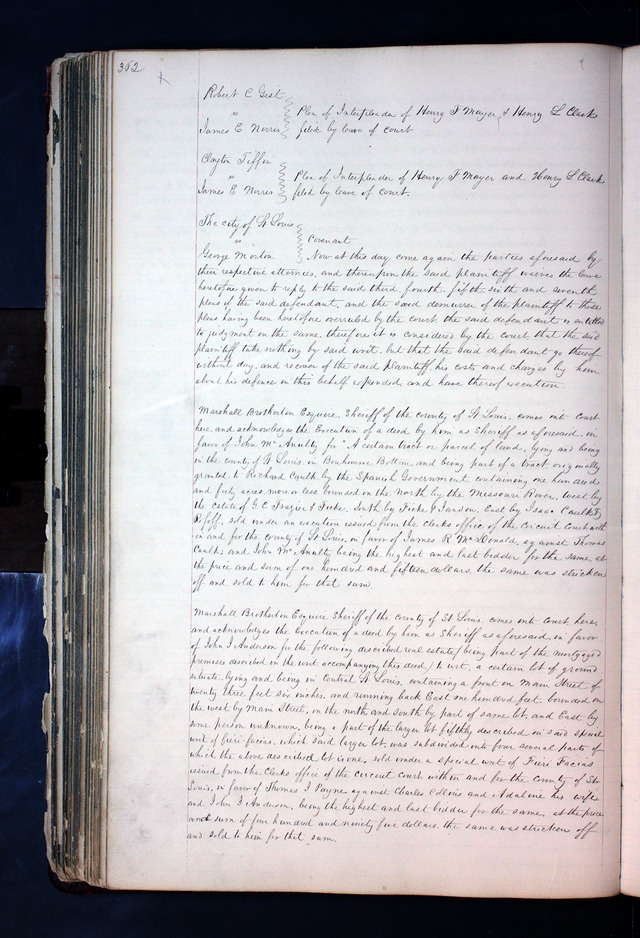 362
Robert C Gest
" Plea of Interpleader of Henry F Mayer, & Henry L Clark
James E Norris filed by leave of court
Clayton Tiffin
" Plea of Interpleader of Henry F Mayer and Henry L Clark
James E Norris filed by leave of court.
The city of St Louis
" Covenant
George Morton Now at this day come again the parties aforesaid by
their respective attornies, and thereupon the said plaintiff waives the leave
heretofore given to reply to the said third, fourth, fifth sixth and seventh
pleas of the said defendant, and the said demurrer of the plaintiff to those
pleas having been heretofore overruled by the court the said defendant is entitled
to judgment on the same, therefore it is considered by the court, that the said
plaintiff take nothing by said writ, but that the said defendant go thereof
without day, and recover of the said plaintiff his costs and charges by him
about his defence in this behalf expended, and have thereof execution.
Marshall Brotherton Esquire, Sheriff of the county of St Louis, comes into Court
here and acknowledges the Execution of a deed by him as Sheriff as aforesaid, in
favor of John McAnulty for "A certain tract or parcel of land, lying and being
in the county of St Louis, in Bonhomme Bottom, and being part of a tract originally
granted to Richard Caulk by the Spanish Government containing one hundred
and forty acres more or less, bounded on the North by the Missouri River, West by
the estate of G. C. Frazier & Ficke, South by Ficke & Farson, East by Isaac Caulk &
sold under an execution issued from the Clerks office of the Circuit Court with
in and for the county of St Louis, in favor of James R McDonald, against Thomas
Caulk, and John McAnulty being the highest and last bidder for the same, at
the price and sum of one hundred and fifteen dollars, the same was stricken
off and sold to him for that sum.
Marshall Brotherton Esquire Sheriff of the county of St Louis, comes into court here,
and acknowledges the Execution of a deed by him as Sheriff as aforesaid, in favor
of John J Anderson for the following described real estate, (being part of the mortgaged
premises described in the writ accompanying this deed,) to wit, a certain lot of ground
situate lying and being in Central St Louis, containing a front on Main Street of
twenty three feet six inches, and running back East one hundred feet, bounded on
the west by Main Street, on the north and south by part of same lot, and East by
some person unknown, being a part of the larger lot fifthly described in said special
writ of fieri facias, which said larger lot, was subdivided into four several parts of
which the above described lot is one, sold under a special writ of Fieri Facias
issued from the Clerks office of the circuit court within and for the County of St
Louis, in favor of Thomas J Payne against Charles Collins and Adaline his wife
and John J Anderson, being the highest and last bidder for the same, at the price
and sum of four hundred and ninety five dollars, the same was stricken off
and sold to him for that sum.